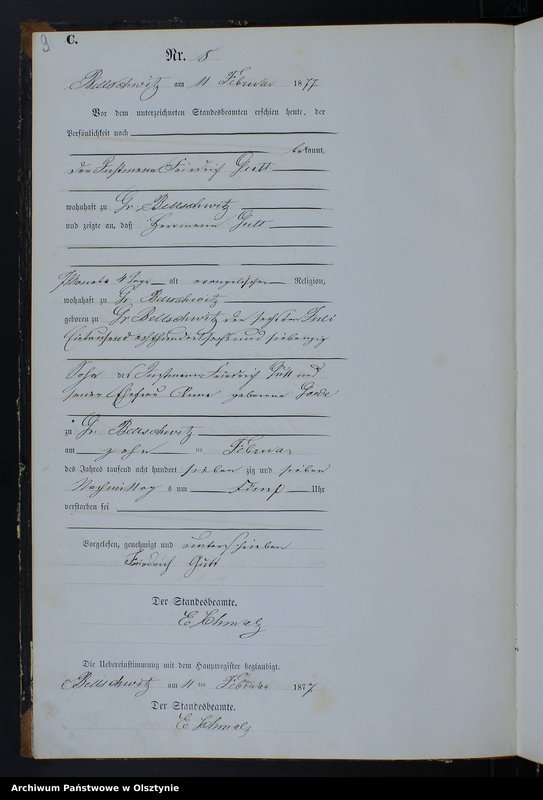 9
C.
Nr. 8
Bellschwitz am 11 Februar 1877
Vor dem unterzeichneten Standesbeamten erschien heute, der
Persönlichkeit nach
bekannt,
der Instmann Friedrich Gutt
wohnhaft zu Gr. Bellschwitz
und zeigte an, daß Herrmann Gutt
7 Monate 4 Tage alt evangelischer Religion,
wohnhaft zu Gr. Bellschwitz
geboren zu Gr. Bellschwitz den sechsten Juli
Eintausend achthundertsechsundsiebenzig
Sohn des Instmann Friedrich Gutt und
seiner Ehefrau Anna geborene
zu Gr. Bellschwitz
am zehn ten Februar
des Jahres tausend acht hundert sieben zig und sieben
Nachmittag s um Fünf Uhr
verstorben sei
Vorgelesen, genehmigt und unterschrieben
Friedrich Gutt
Der Standesbeamte.
E. Schmalz
Die Uebereinstimmung mit dem Hauptregister beglaubigt.
Bellschwitz am 11 ten Februar 1877
Der Standesbeamte.
E. Schmalz
Archiwum Państwowe w Olsztynie